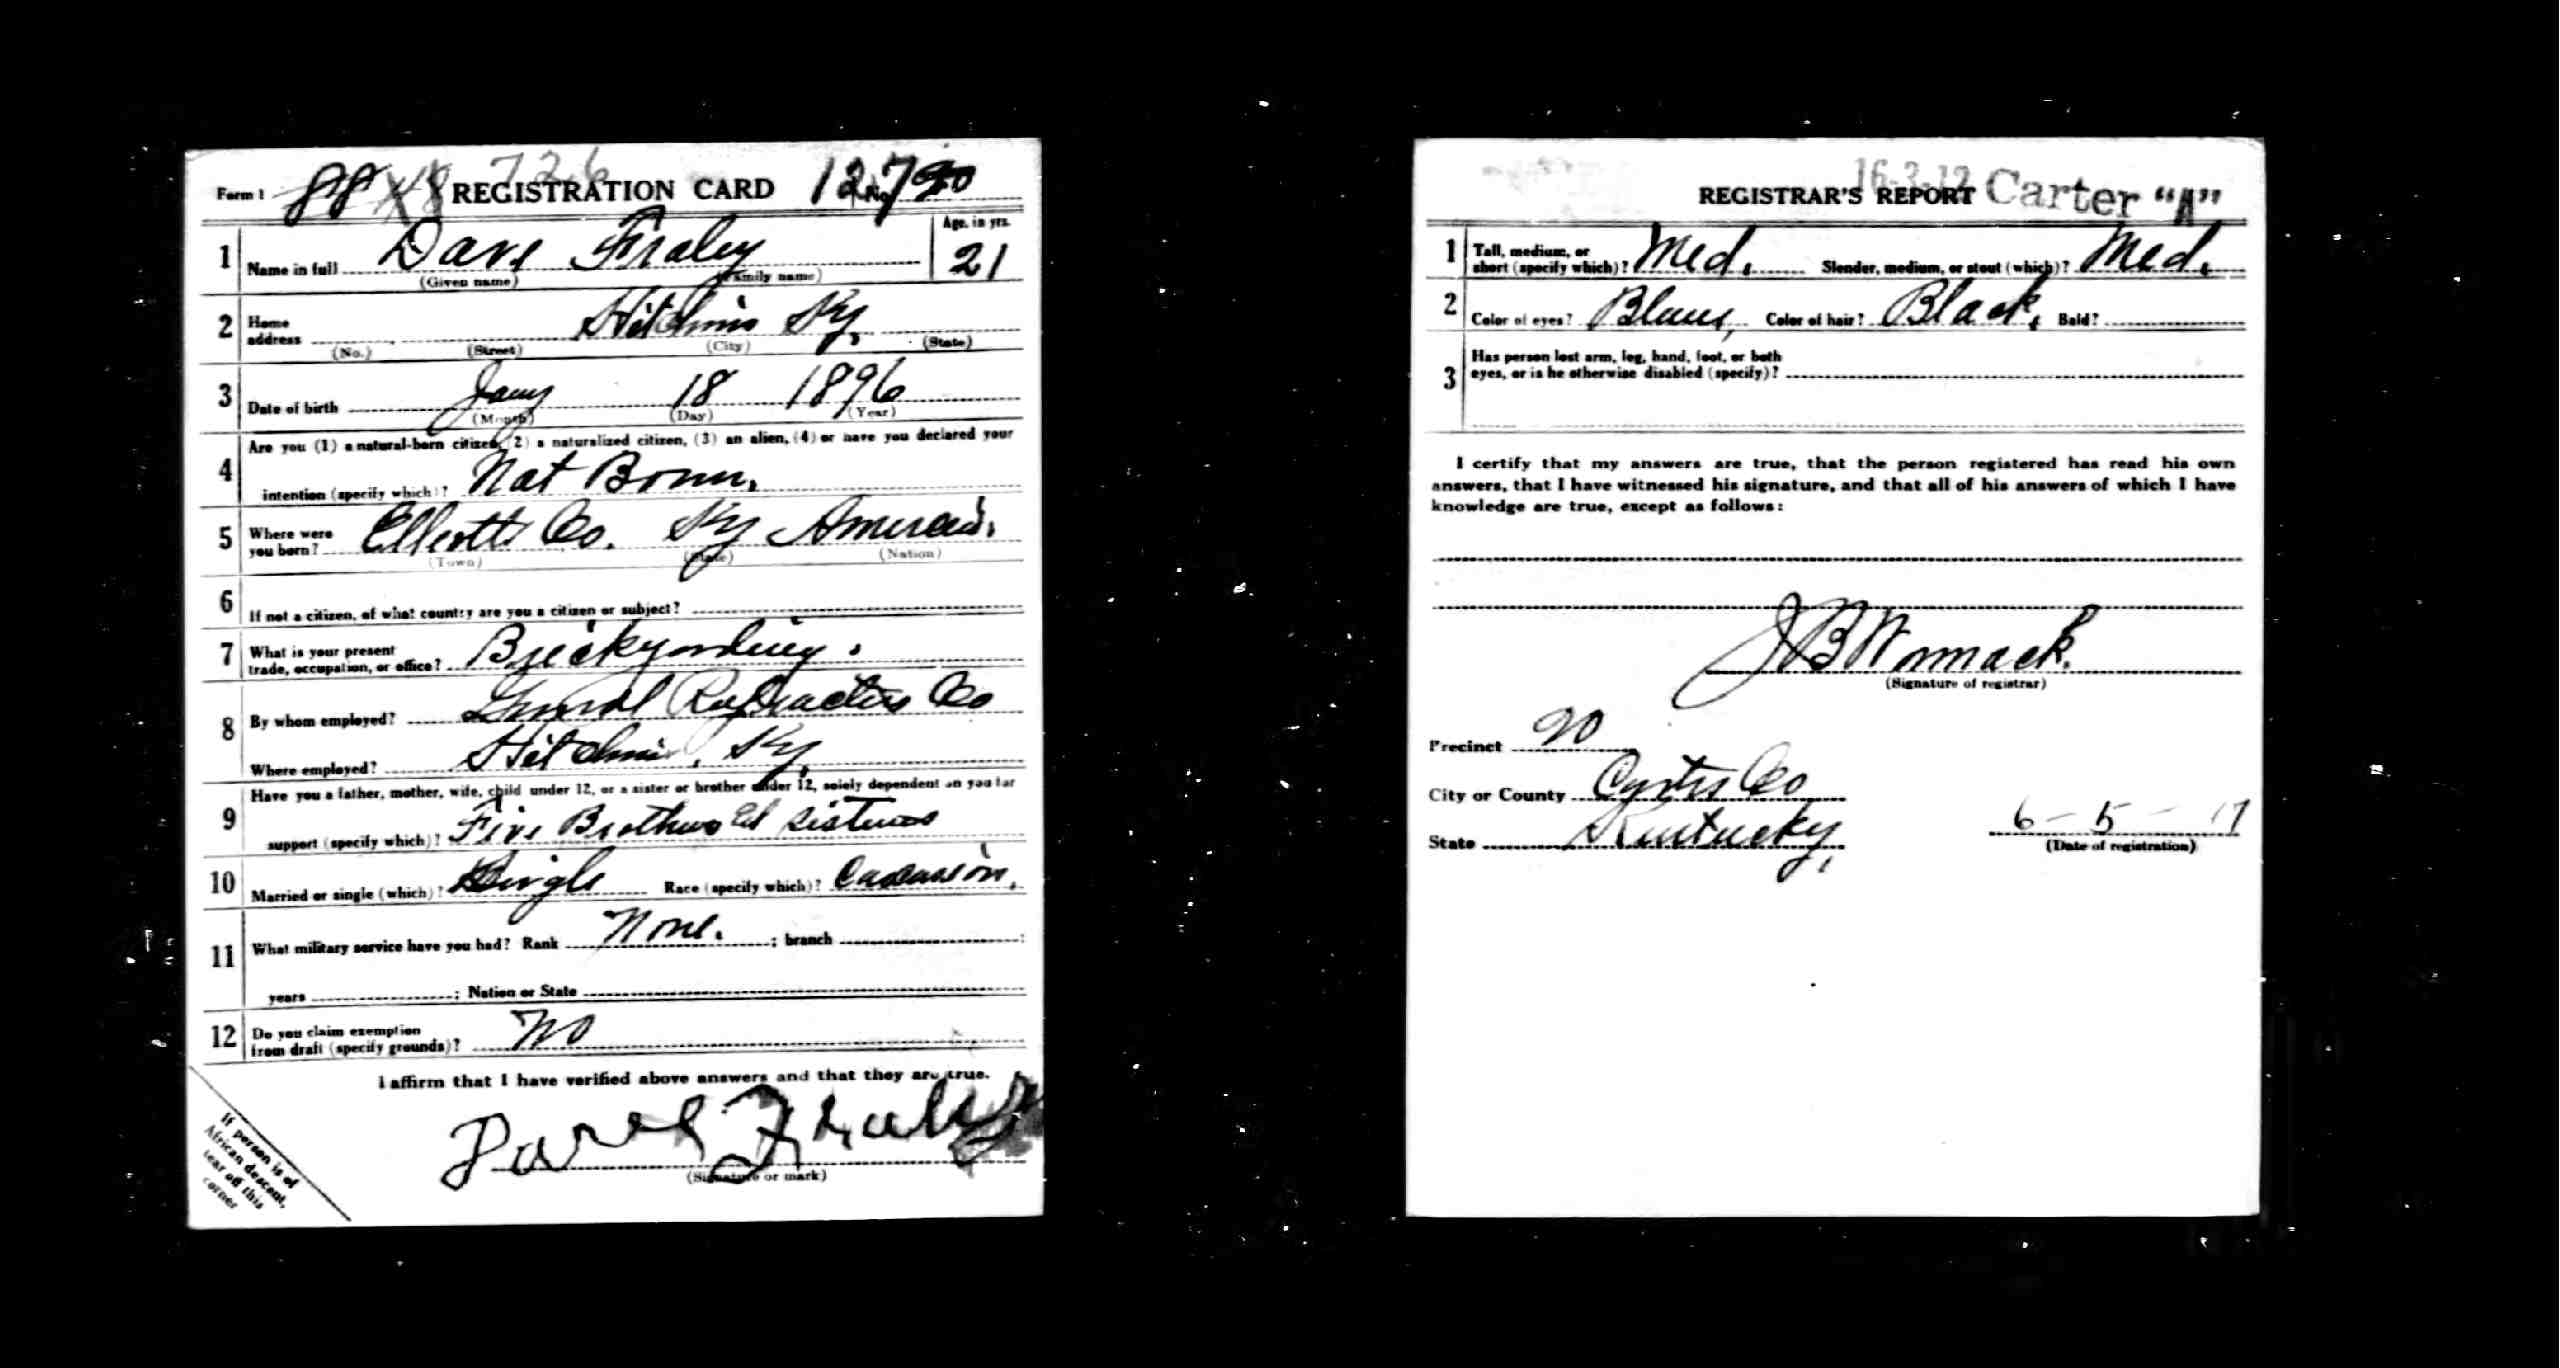 Form 1 88 48 726 REGISTRATION CARD No. 127 20
1 Name in full Dave Fraley Age, in yrs. 21
(Given name) (Family name)
2 Home address Hitchins Ky.
(No.) (Street) (City) (State)
3 Date of birth Jany 18 1896
(Month) (Day) (Year)
4 Are you (1) a natural-born citizen, (2) a naturalized citizen, (3) an alien, (4) or have you declared your
intention (specify which)? Nat Born.
5 Where were you born? Elliott Co. Ky America.
(Town) (State) (Nation)
6 If not a citizen, of what country are you a citizen or subject?
7 What is your present
trade, occupation, or office? Brickyarding.
8 By whom employed? General Refractors Co
Where employed? Hitchins, Ky.
9 Have you a father, mother, wife, child under 12, or a sister or brother under 12, solely dependent on you for
support (specify which)? Five Brothers sisters
10 Married or single (which)? Single Race (specify which)? Caucasion.
11 What military service have you had? Rank None. ; branch ;
years ; Nation or State
12 Do you claim exemption
from draft (specify grounds)? No
I affirm that I have verified above answers and that they are true.
Dave Fraley
(Signature or mark)
If person is of
African descent,
tear off this
corner
16-3-12
REGISTRAR'S REPORT Carter "A"
1 Tall, medium, or
short (specify which)? Med. Slender, medium, or stout (which)? Med.
2 Color of eyes? Blue, Color of hair? Black. Bald?
3 Has person lost arm, leg, hand, foot, or both
eyes, or is he otherwise disabled (specify)?
I certify that my answers are true, that the person registered has read his own
answers, that I have witnessed his signature, and that all of his answers of which I have
knowledge are true, except as follows:
J B Womack.
(Signature of registrar)
Precinct 20
City or County Carter Co
State Kentucky, 6 - 5 - 17
(Date of registration)